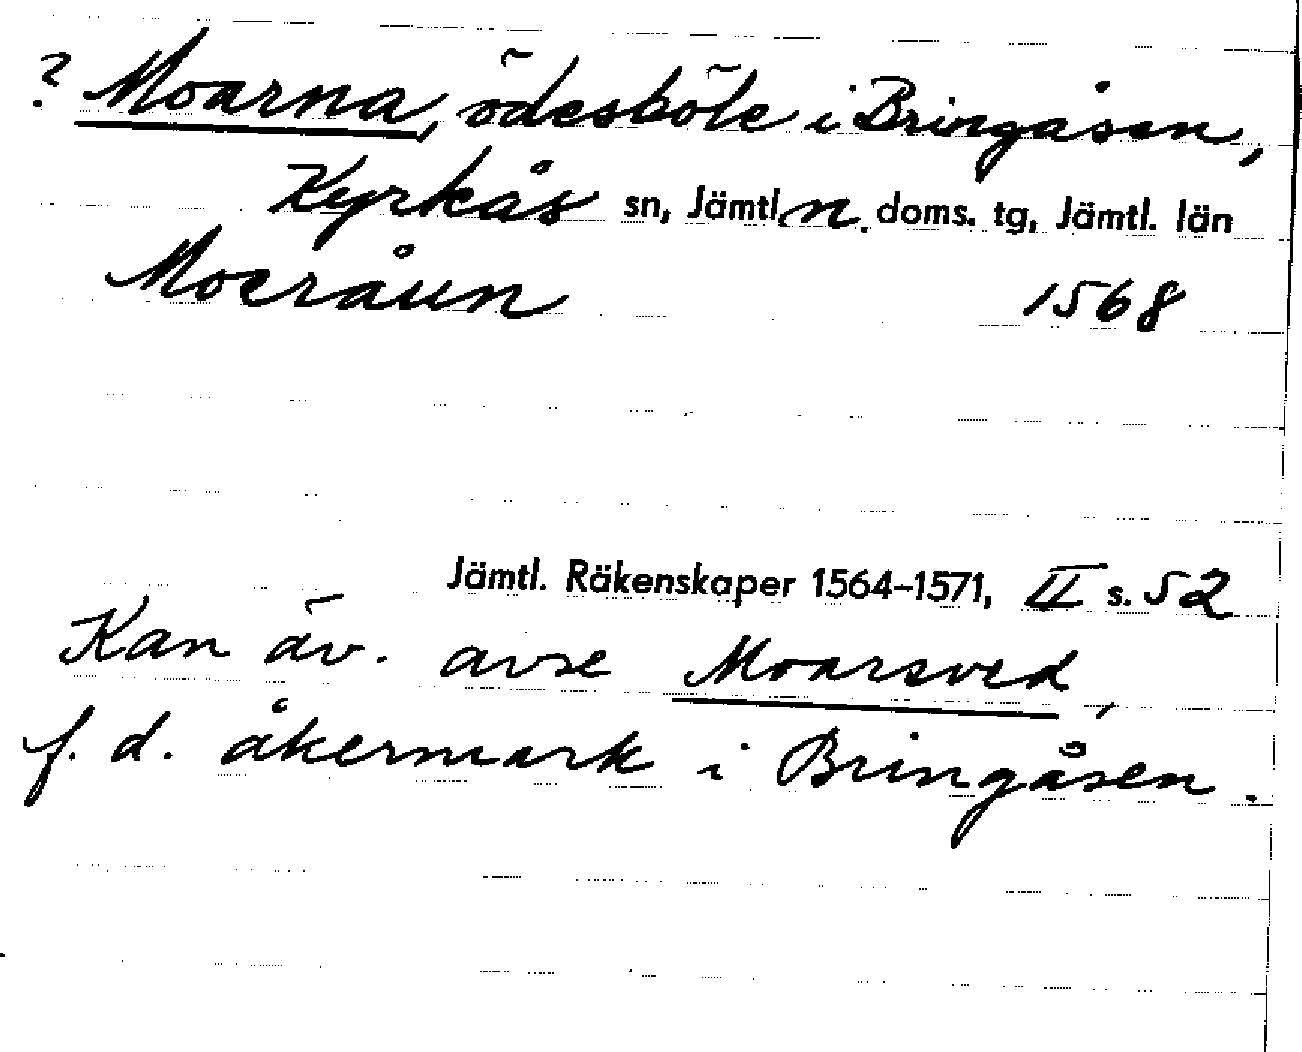 ? Moarna, ödesböle i Bringåsen,
Kyrkås sn, Jämtl. n. doms. tg, Jämtl. län
Moeråun 1568
Jämtl. Räkenskaper 1564–1571, II s. 52
Kan äv. avse Moarsved,
f. d. åkermark i Bringåsen.